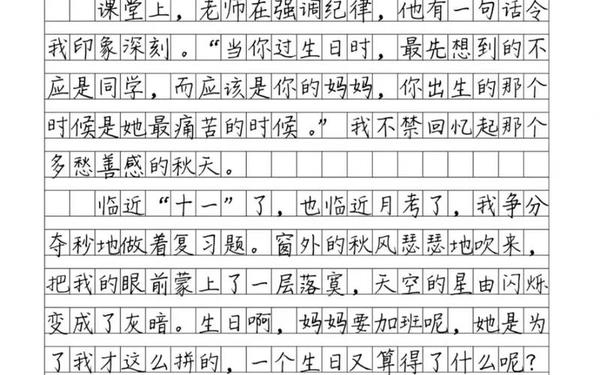 课堂上，老师在强调纪律，他有一句话令
我印象深刻。“当你过生日时，最先想到的不
应是同学，而应该是你的妈妈，你出生的那个
时候是她最痛苦的时候。”我不禁回忆起那个
多愁善感的秋天。
临近“十一”了，也临近月考了，我争分
夺秒地做着复习题。窗外的秋风瑟瑟地吹来，
把我的眼前蒙上了一层落寞，天空的星由闪烁
变成了灰暗。生日啊，妈妈要加班呢，她是为
了我才这么拼的，一个生日又算得了什么呢？